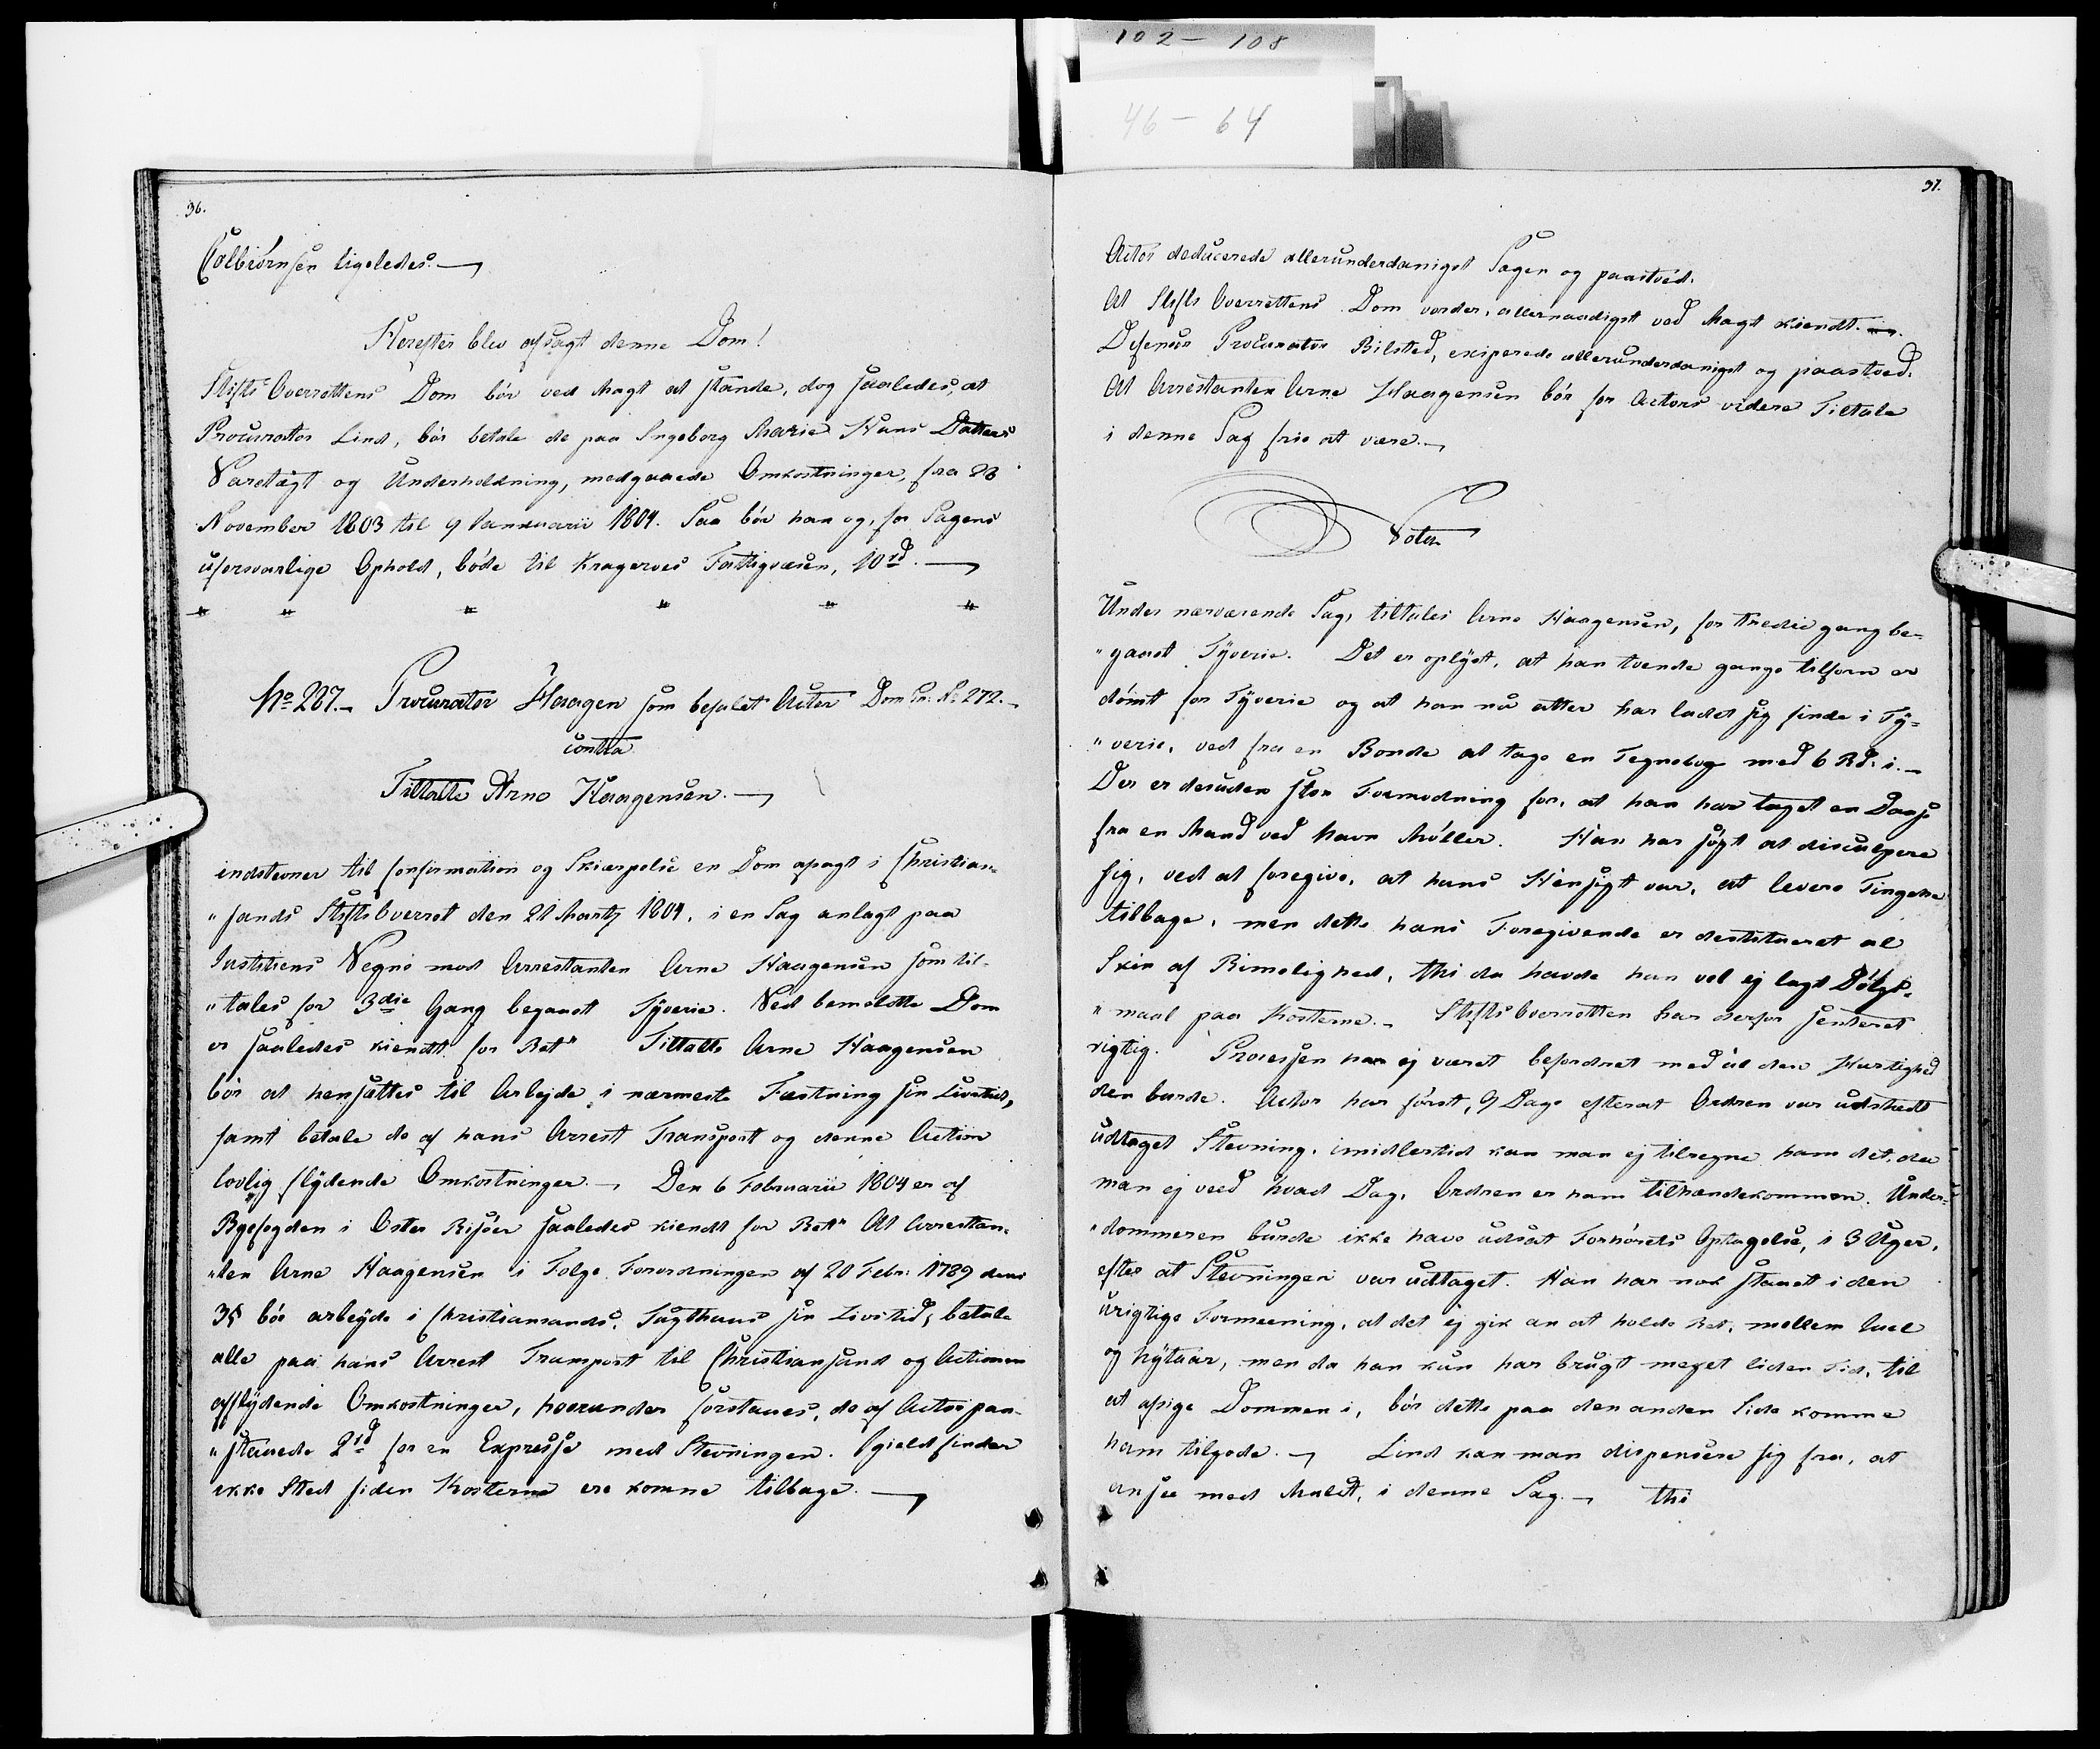 102 - 108
46 - 64
36.
Colbiörnsen ligeledes.
Herefter blev afsagt denne Dom!
Stifts Overrettens Dom bör ved Magt at stande, dog saaledes, at
Procurator Lind, bör betale de paa Ingeborg Marie Hans Datters
Varetægt og Underholdning, medgaaede Omkostninger, fra 28
November 1803 til 9 Januarii 1804. Saa bör han og, for Sagens
uforsvarlige Ophold, böde til Kragerøes Fattigvæsen, 10 rd.
" " " " " "
No 227. Procurator Haagen som befalet Actor Dom Pr: No 272.
contra
Tiltalte Arne Haagensen.
indstevner til Confirmation og Skiærpelse en Dom afsagt i Christian-
"sands StiftsOverret den 21 Martz 1804, i en Sag anlagt paa
Justitiens Vegne mod Arrestanten Arne Haagensen som til-
"tales for 3die Gang begaaet Tyverie. Ved bemeldte Dom
er saaledes kiendt for Ret" Tiltalte Arne Haagensen
bör at hensættes til Arbejde i nærmeste Fæstning sin Livstid,
samt betale de af hans Arrest Transport og denne Action
lovlig flydende Omkostninger. Den 6 Februarii 1804 er af
Byefogden i Öster Risöer saaledes kiendt for Ret" At Arrestan-
"ten Arne Haagensen i Følge Forordningen af 20 Febr: 1789 dens
3§ bör arbeyde i Christiansands Tugthuus sin Livstid, betale
alle paa hans Arrest Transport til Christiansand og Actionen
afflydende Omkostninger, hvorunder forstaaes, de af Actor paa-
"staaede 2 rd for en Expresse med Stevningen. Igield finder
ikke Sted siden Kosterne ere komne tilbage.
37.
Actor deducerede allerunderdanigst Sagen og paastod.
At Stifts Overrettens Dom vorder, allernaadigst ved Magt kiendt.
Defensor Procurator Bilsted, exiperede allerunderdanigst og paastod.
At Arrestanten Arne Haagensen bör for Actors videre Tiltale
i denne Sag frie at være.
Vota
Under nærværende Sag, tiltales Arne Haagensen, for tredie gang be-
"gaaet Tyverie. Det er oplyst, at han tvende gange tilforn er
dömt for Tyverie og at han nu atter har ladet sig finde i Ty-
"verie, ved fra en Bonde at tage en Tegnebog med 6 Rd. i.
Der er desuden stor Formodning for, at han har taget en Daase
fra en Mand ved Navn Möller. Han har sögt at disculpere
sig, ved at foregive, at hans Hensigt var, at levere Tingene
tilbage, men dette hans Foregivende er destitueret al
Skin af Rimelighed, thi da havde han vel ej lagt Dölgs-
"maal paa Kosterne. StiftsOverretten har derfor senteret
rigtig. Processen har ej været befordret med al den Hurtighed
den burde. Actor har först, 9 Dage efterat Ordren var udstædt
udtaget Stevning, imidlertid kan man ej tilregne ham det, da
man ej veed hvad Dag, Ordren er ham tilhændekommen. Under-
"dommeren burde ikke have udsat Forhörets Optagelse, i 3 Uger,
efter at Stevningen var udtaget. Han har nok staaet i den
urigtige Formeening, at det ej gik an at holde Ret, mellem Juel
og Nytaar, men da han kun har brugt meget liden Tid, til
at afsige Dommen i, bör dette paa den anden Side komme
ham tilgode. Lind kan man dispensere sig fra, at
ansee med Mulct, i denne Sag. thi